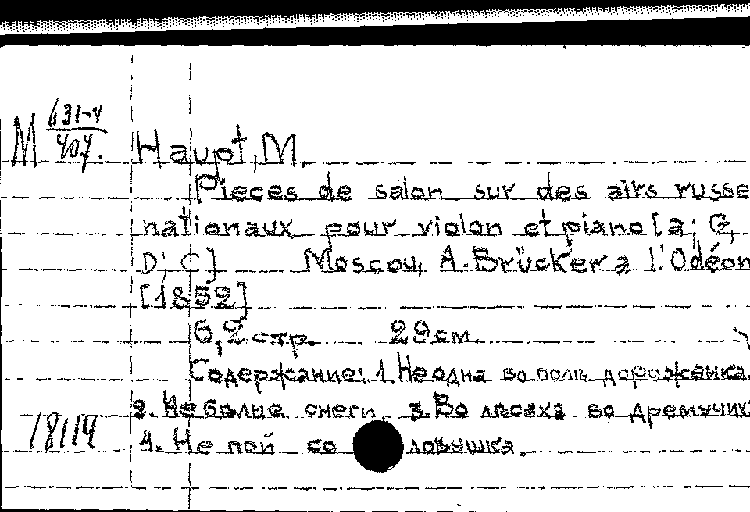 M 631-4
407.
Haupt, M.
Pieces de salon sur des airs russe
nationaux pour violon et piano [a; G,
D; C] Moscou, A. Brücker a l'Odéon
[1852]
6,2 стр. 29 см.
Содержание: 1. Не одна во поле дороженка.
2. Не белые снеги. 3. Во лесаха во дремучих
18114
4. Не пой соловушка.